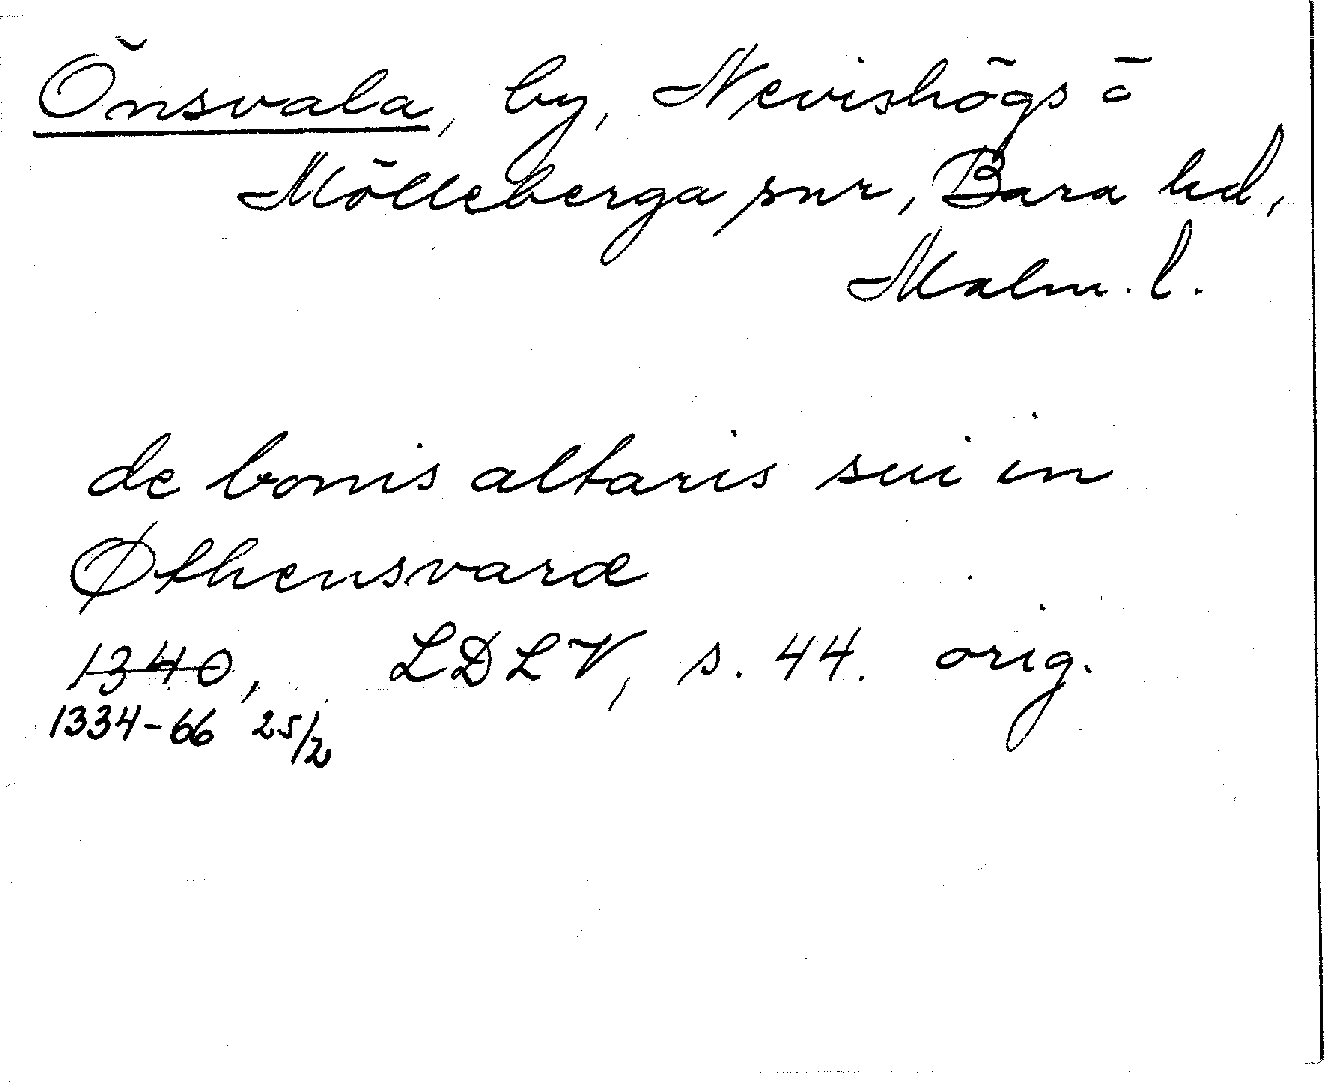 Önsvala, by, Nevishögs o
Mölleberga snr, Bara hd,
Malm. l.
de bonis altaris sui in
Øthensvaræ
1340, LDLV, s. 44. orig.
1334-66 25/2